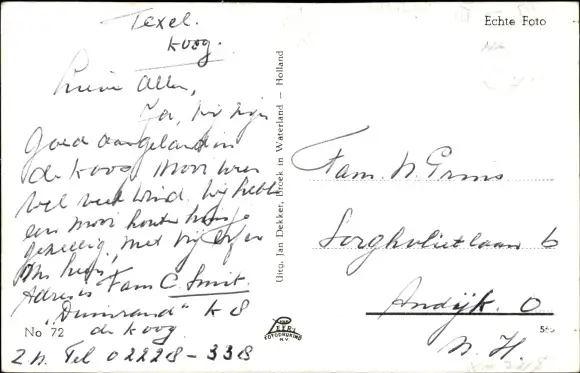 Texel.
Koog.
Echte Foto
Allen,
Ja,
Goed aangeland in
de Koog. Mooi weer
wel veel wind. Wij hebben
een mooi houten huisje
gezellig, met
Adres is Fam C. Smit.
"Duinrand" K 8
No 72 de Koog.
Z.H. Tel 02228-338
Uitg. Jan Dekker, Broek in Waterland — Holland
FOTODRUKING
N.V.
Fam. N Grins
Sorghvlietlaan 6
Andijk. O
N. H.